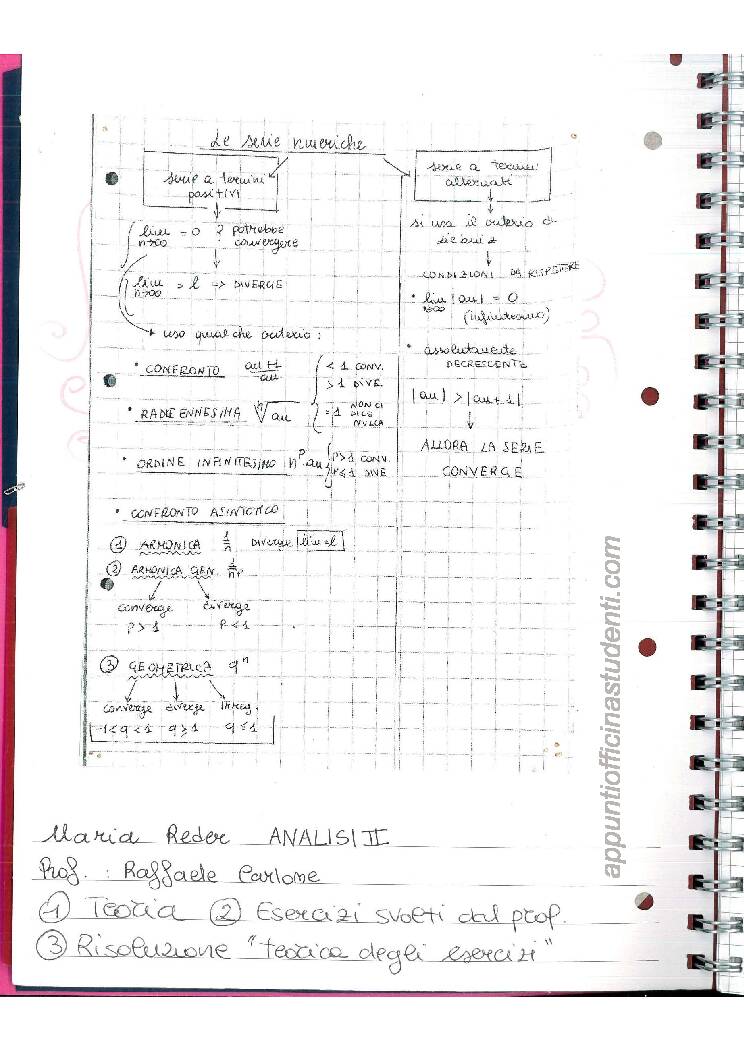 Le serie numeriche
serie a termini
positivi
lim = 0 ? potrebbe
n→∞ convergere
lim = l → DIVERGE
n→∞
uso qualche criterio:
• CONFRONTO an+1/an { < 1 CONV.
> 1 DIVE.
• RADICE ENNESIMA ⁿ√an = 1 NON CI
DICE
NULLA
• ORDINE INFINITESIMO nᵖ·an { p>1 CONV.
p≤1 DIVE
• CONFRONTO ASINTOTICO
① ARMONICA 1/n DIVERGE lim=l
② ARMONICA GEN. 1/nᵖ
converge diverge
p>1 p≤1
③ GEOMETRICA qⁿ
converge diverge irreg.
-1<q<1 q≥1 q≤1
serie a termini
alternati
si usa il criterio di
CONDIZIONI DA RISPETTARE
• lim |an| = 0
n→∞ (infinitesimo)
• assolutamente
DECRESCENTE
|an| > |an+1|
ALLORA LA SERIE
CONVERGE
appuntiofficinastudenti.com
Maria Reder ANALISI II
Prof. : Raffaele Carlone
① Teoria ② Esercizi svolti dal prof.
③ Risoluzione "teorica degli esercizi"